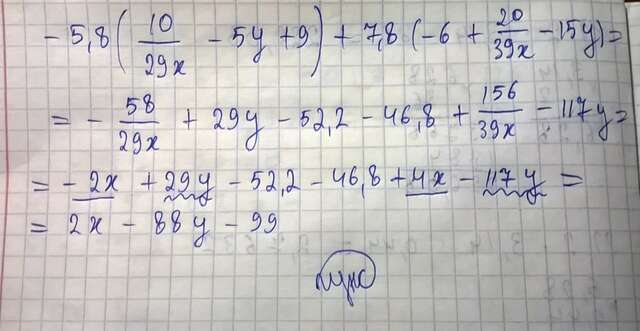 - 5,8 (10/29x - 5y + 9) + 7,8 (-6 + 20/39x - 15y) =
= - 58/29x + 29y - 52,2 - 46,8 + 156/39x - 117y =
= - 2x + 29y - 52,2 - 46,8 + 4x - 117y =
= 2x - 88y - 99